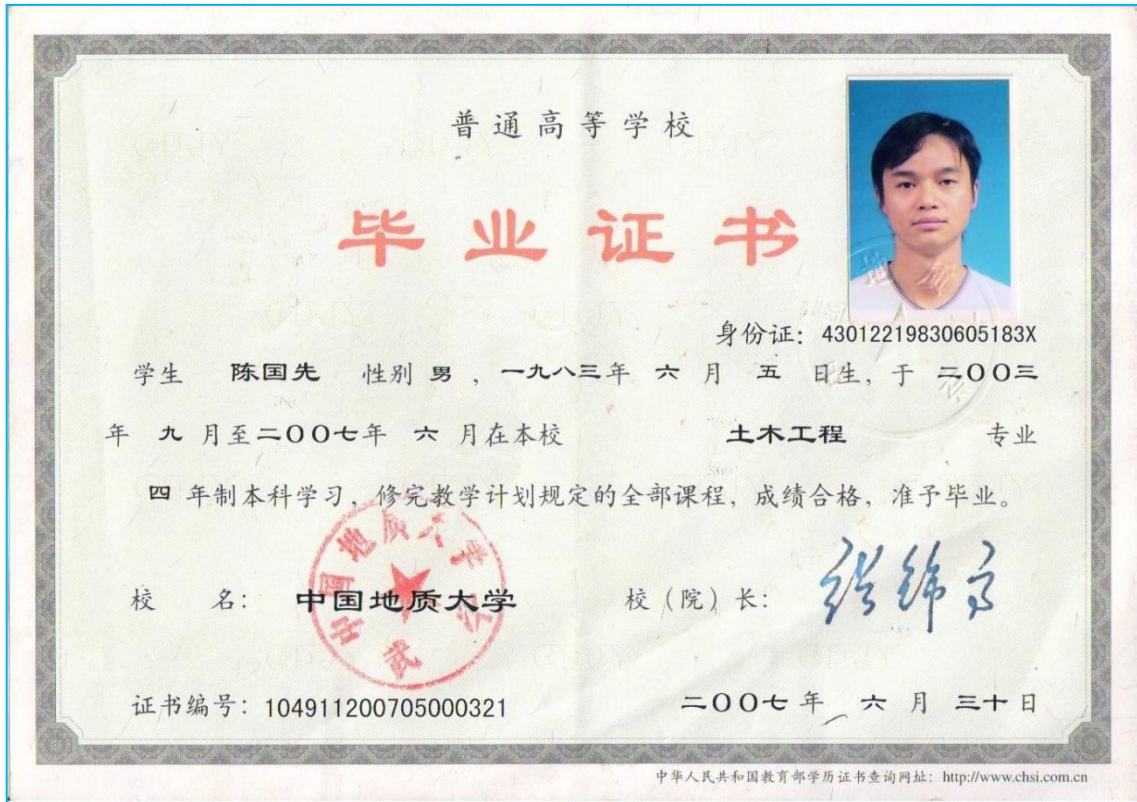 普通高等学校
毕业证书
身份证：43012219830605183X
学生 陈国先 性别 男 ，一九八三年 六 月 五 日生，于 二〇〇三
年 九 月至二〇〇七年 六 月在本校 土木工程 专业
四 年制本科学习，修完教学计划规定的全部课程，成绩合格，准予毕业。
中国地质大学
武汉
校 名： 中国地质大学 校（院）长：
证书编号：104911200705000321 二〇〇七年 六 月 三十日
中华人民共和国教育部学历证书查询网址：http://www.chsi.com.cn